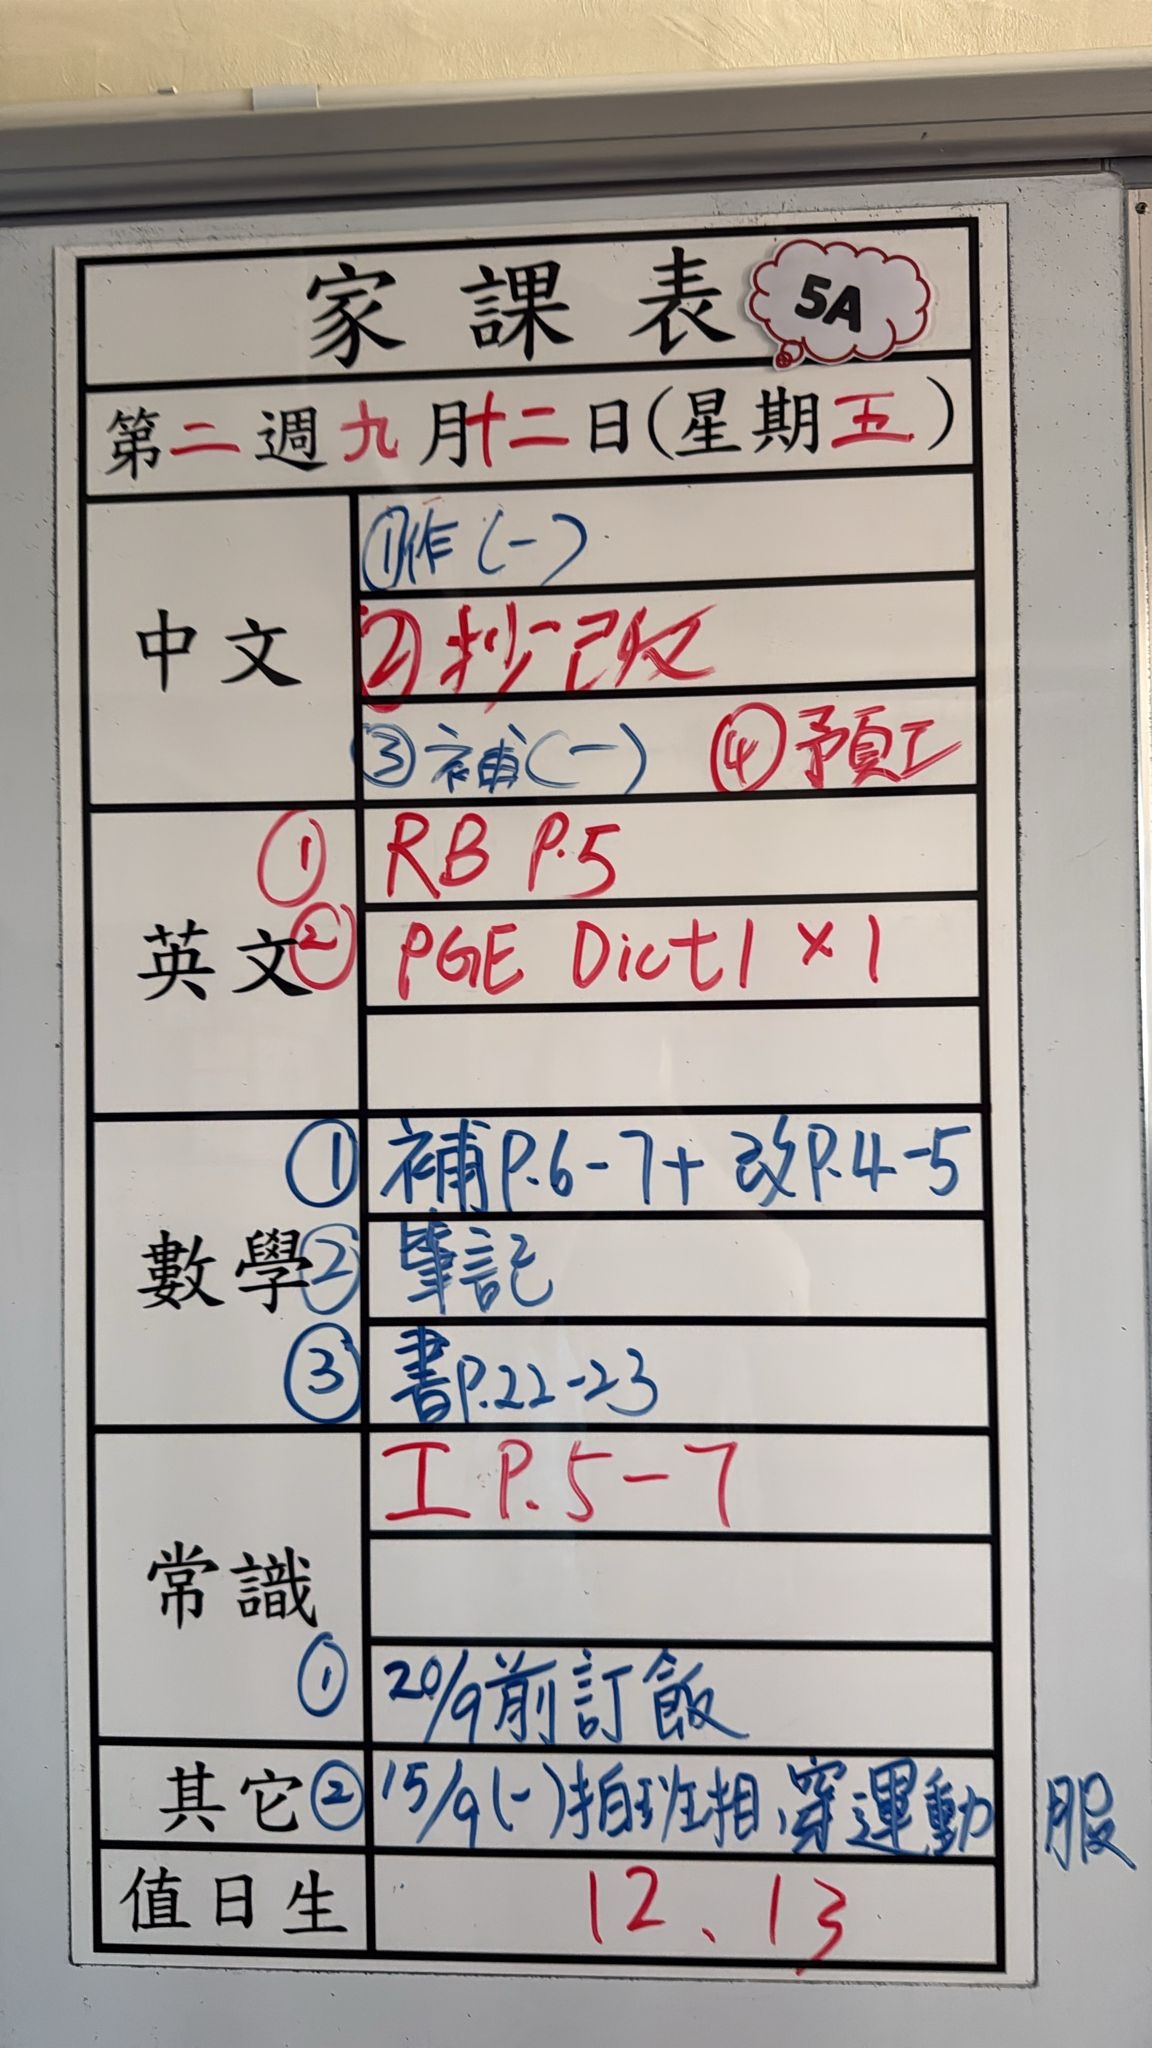 家課表 5A
第二週九月十二日(星期五)
中文
①作(一)
②抄一已改
③補(一) ④預工
英文
① RB P.5
② PGE Dict1 × 1
數學
① 補P.6-7+改P.4-5
② 筆記
③ 書P.22-23
常識
工P.5-7
① 20/9前訂飯
其它
② 15/9(一)拍班相,穿運動服
值日生
12、13